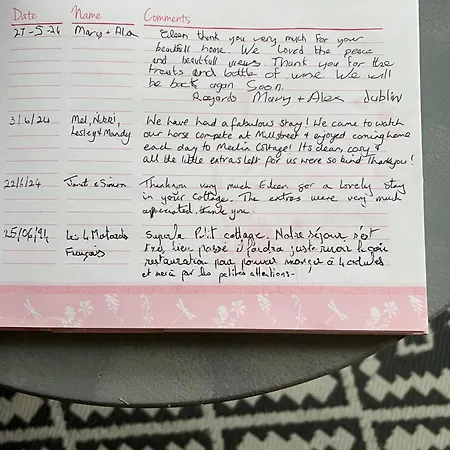 Date Name Comments
27-5-24 Mary + Alex Eileen thank you very much for your
beautifull home. We loved the peace
and beautifull views. Thank you for the
treats and bottle of wine. We will
be back again soon.
Regards Mary + Alex Dublin
3/6/24 Mel, Nikki, We have had a fabulous stay! We came to watch
Lesley & Mandy our horse compete at Millstreet & enjoyed coming home
each day to Merlin Cottage! Its clean, cosy &
all the little extras left for us were so kind. Thankyou!
22/6/24 Janet & Simon Thankyou very much Eileen for a lovely stay
in your cottage. The extras were very much
appreciated. thank you.
25/06/24 Les 4 Motards Superbe Petit cottage. Notre séjour s'est
Français très bien passé il faudra juste revoir le coin
restauration pour pouvoir manger à 4 adultes
et merci par les petites attentions-